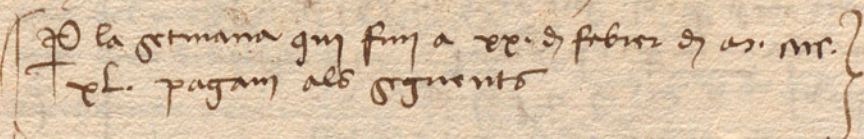 P la setmana qui finj a xx. d febrer d m. cccc.
xl. pagam als seguents